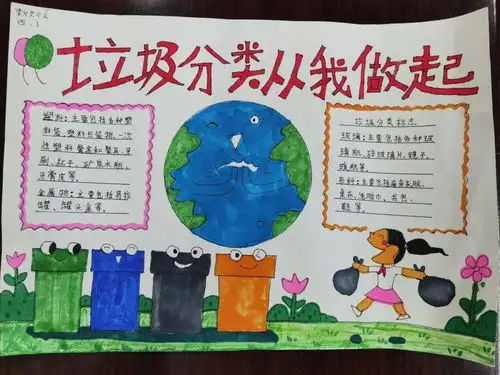 四.1
垃圾分类从我做起
塑料:主要包括各种塑
料袋、塑料包装物、一次
性塑料餐盒和餐具、牙
刷、杯子、矿泉水瓶、
牙膏皮等。
金属物:主要包括易拉
罐、罐头盒等。
垃圾分类标志
玻璃:主要包括各种玻
璃瓶、碎玻璃片、镜子、
暖瓶等。
布料:主要包括废弃衣服、
桌布、洗脸巾、书包、
鞋等。